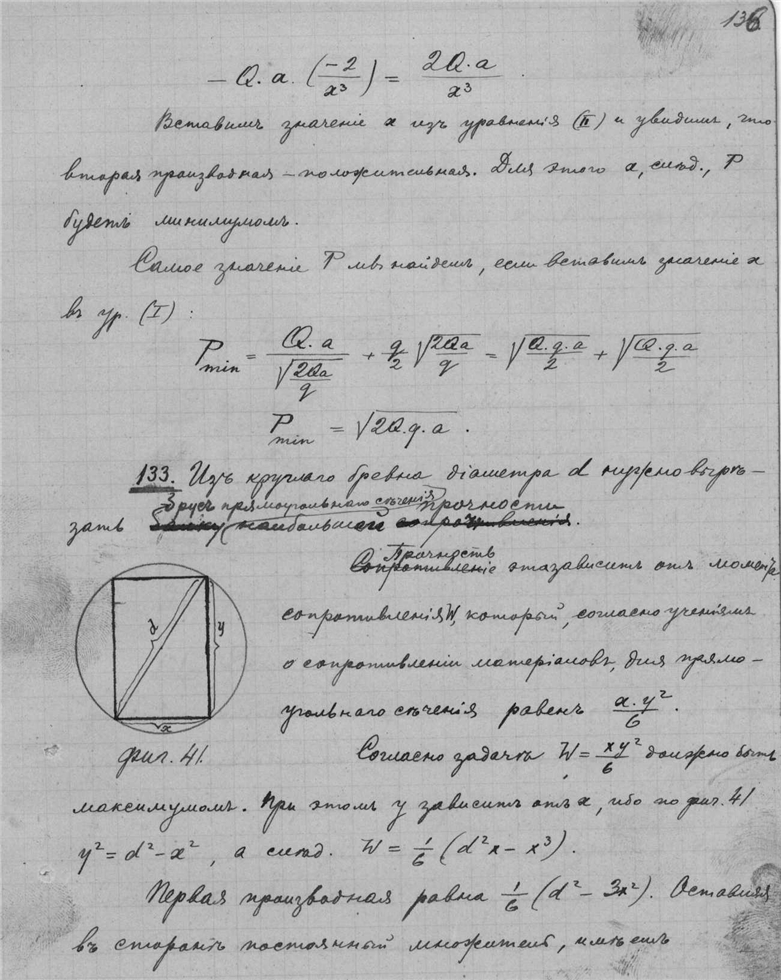 136
− Q. a. (−2/x³) = 2Q.a/x³.
Вставимъ значеніе x изъ уравненія (II) и увидимъ, что
вторая производная – положительная. Для этого x, слѣд., P
будетъ минимумомъ.
Самое значеніе P мы найдемъ, если вставимъ значеніе x
въ ур. (I) :
P min = Q.a/√(2Qa/q) + q/2 √(2Qa/q) = √(Q.q.a/2) + √(Q.q.a/2)
P min = √(2Q.q.a) .
133. Изъ круглаго бревна діаметра d нужно вырѣ–
брусъ прямоугольнаго сѣченія прочности
зать балку наибольшей сопротивленія.
Прочность
Сопротивленіе эта зависитъ отъ момента
сопротивленія W, который, согласно ученіямъ
о сопротивленіи матеріаловъ, для прямо–
угольнаго сѣченія равенъ x.y²/6.
d
y
x
фиг. 41.
Согласно задачѣ W = xy²/6 должно быть
максимумомъ. При этомъ y зависитъ отъ x, ибо по фиг. 41
y² = d² – x² , а слѣд. W = 1/6 (d²x – x³) .
Первая производная равна 1/6 (d² – 3x²). Оставляя
въ сторонѣ постоянный множитель, имѣемъ